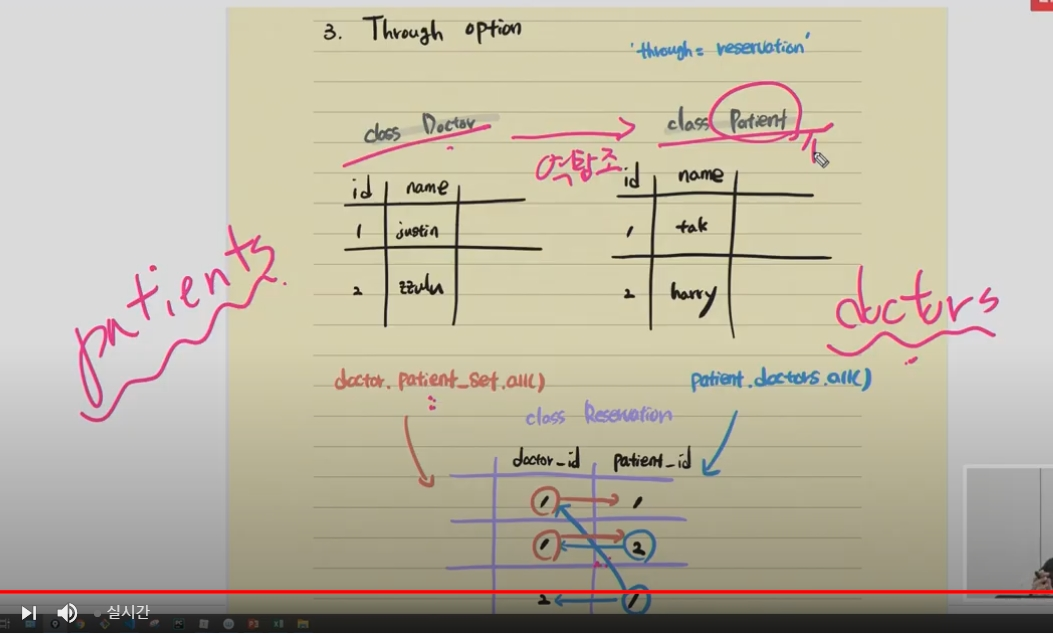 3. Through option
'through = reservation'
class Doctor
class Patient
역참조
id name
1 justin
2 zzulu
id name
1 tak
2 harry
patients
doctors
doctor.patient_set.all()
patient.doctors.all()
class Reservation
doctor_id patient_id
1 1
1 2
2 1
실시간